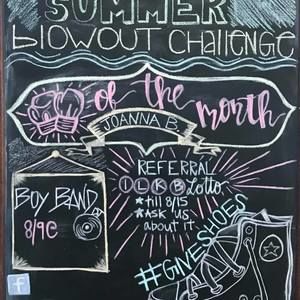 SUMMER
blowout challenge
of the month
JOANNA B.
REFERRAL
ILKB Lotto
*till 8/15
*ASK US
about it
BOY BAND
8/9@
#GIVESHOES
f